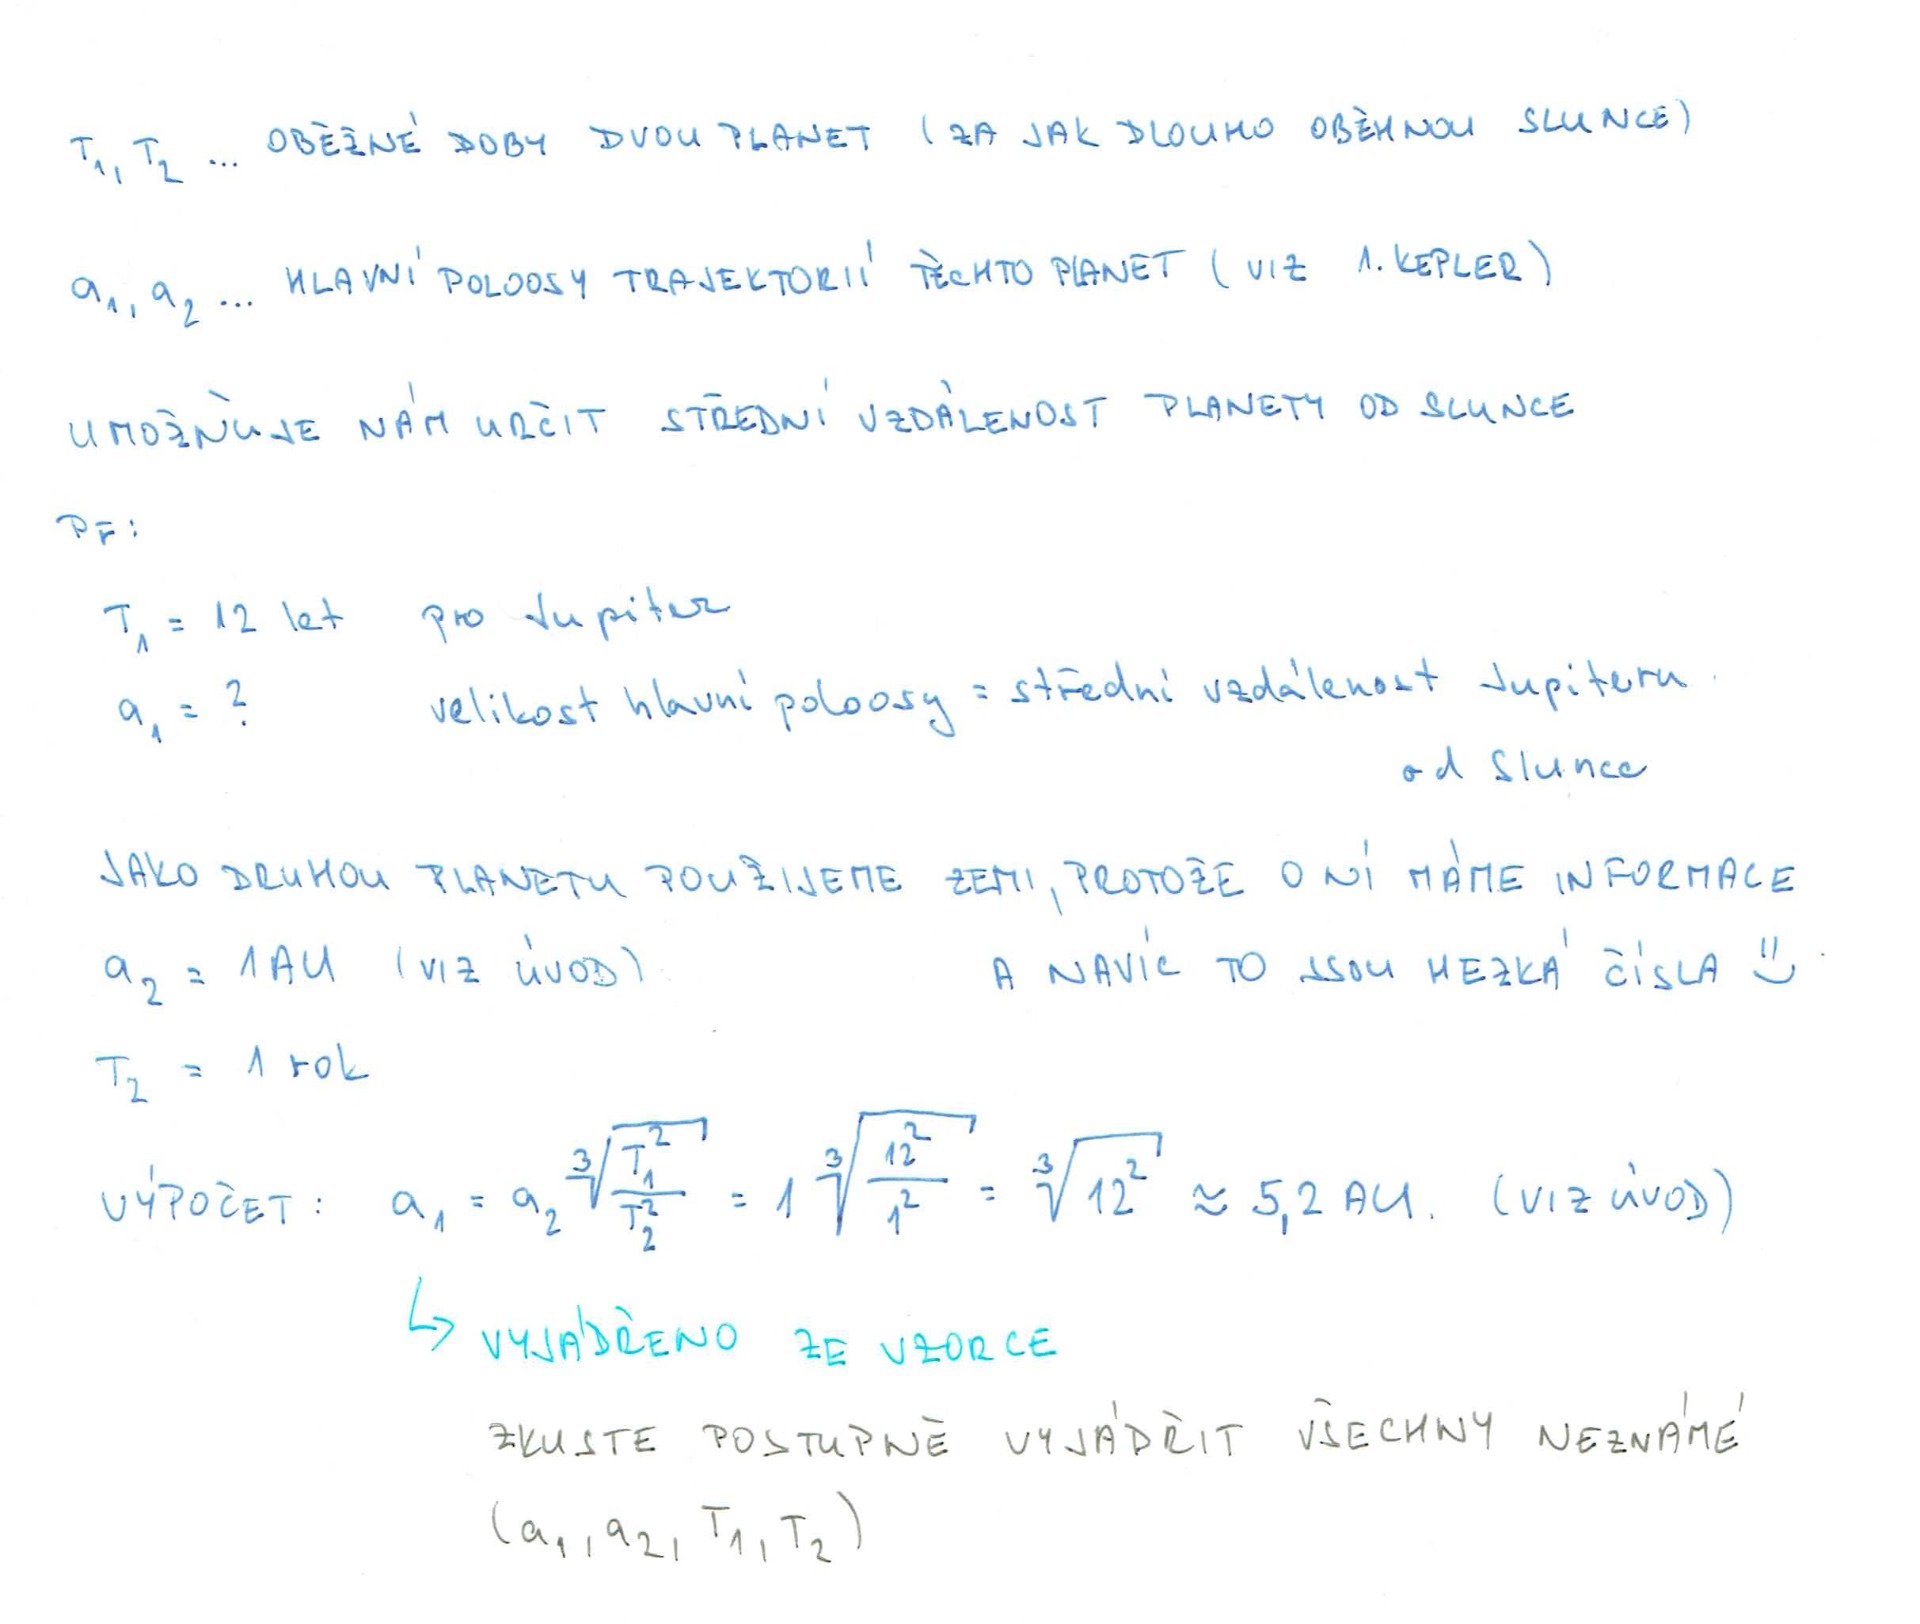 T₁, T₂ ... OBĚŽNÉ DOBY DVOU PLANET (ZA JAK DLOUHO OBĚHNOU SLUNCE)
a₁, a₂ ... HLAVNÍ POLOOSY TRAJEKTORIÍ TĚCHTO PLANET (VIZ 1. KEPLER)
UMOŽŇUJE NÁM URČIT STŘEDNÍ VZDÁLENOST PLANETY OD SLUNCE
PŘ:
T₁ = 12 let pro Jupiter
a₁ = ? velikost hlavní poloosy = střední vzdálenost Jupiteru
od Slunce
JAKO DRUHOU PLANETU POUŽIJEME ZEMI, PROTOŽE O NÍ MÁME INFORMACE
a₂ = 1AU (VIZ ÚVOD) A NAVÍC TO JSOU HEZKÁ ČÍSLA :)
T₂ = 1 rok
VÝPOČET: a₁ = a₂ ∛(T₁²/T₂²) = 1 ∛(12²/1²) = ∛(12²) ≈ 5,2 AU. (VIZ ÚVOD)
↳ VYJÁDŘENO ZE VZORCE
ZKUSTE POSTUPNĚ VYJÁDŘIT VŠECHNY NEZNÁMÉ
(a₁, a₂, T₁, T₂)